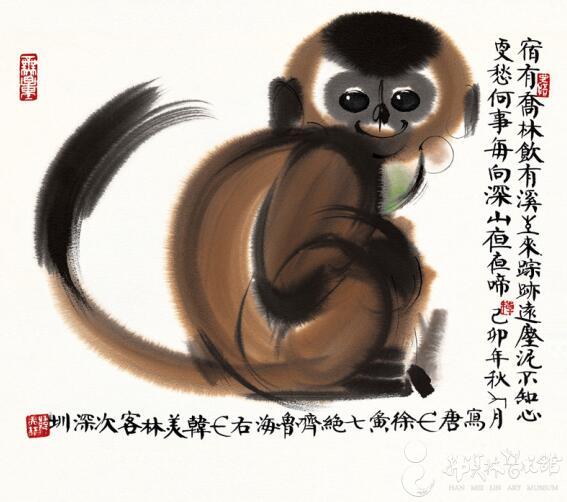 宿有喬林飲有溪生來踪跡遠塵泥不知心
更愁何事每向深山夜夜啼 己卯年秋八月
寫唐人徐寅七絕齊魯海右人韓美林客次深圳
HAN MEI LIN ART MUSEUM